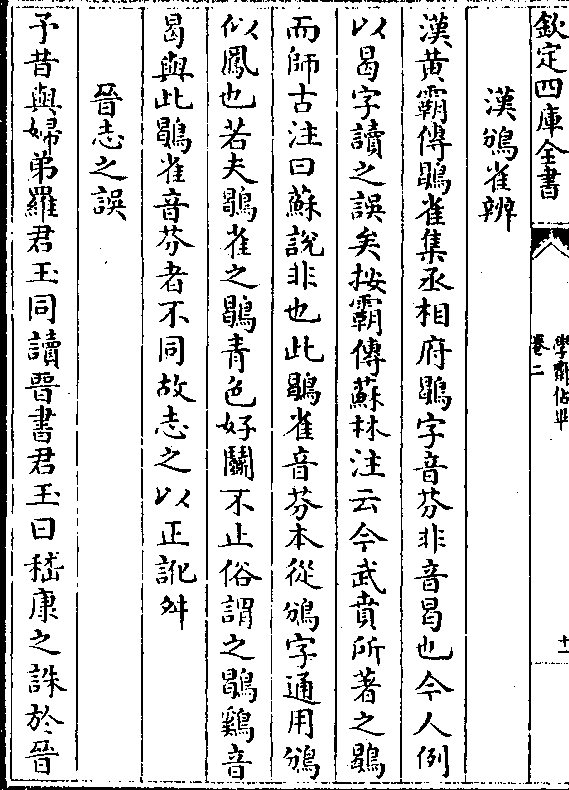 欽定四庫全書
學齋佔畢
卷二
十一
漢鳻雀辨
漢黃霸傳鶡雀集丞相府鶡字音芬非音曷也今人例
以曷字讀之誤矣按霸傳蘇林注云今武賁所著之鶡
而師古注曰蘇說非也此鶡雀音芬本從鳻字通用鳻
似鳳也若夫鶡雀之鶡青色好鬭不止俗謂之鶡鷄音
曷與此鶡雀音芬者不同故志之以正訛舛
晉志之誤
予昔與婦弟羅君玉同讀晉書君玉曰嵇康之誅於晉